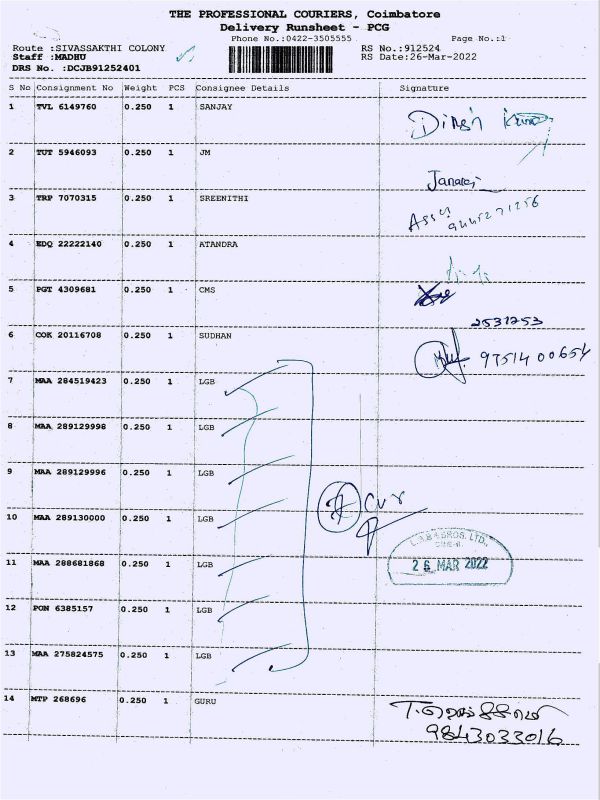 THE PROFESSIONAL COURIERS, Coimbatore
Delivery Runsheet - PCG
Phone No.:0422-3505555 Page No.:1
Route :SIVASSAKTHI COLONY RS No.:912524
Staff :MADHU RS Date:26-Mar-2022
DRS No. :DCJB91252401
S No Consignment No Weight PCS Consignee Details Signature
1 TVL 6149760 0.250 1 SANJAY
2 TUT 5946093 0.250 1 JM
3 TRP 7070315 0.250 1 SREENITHI
4 EDQ 22222140 0.250 1 ATANDRA
5 PGT 4309681 0.250 1 CMS
2531253
6 COK 20116708 0.250 1 SUDHAN 9751400654
7 MAA 284519423 0.250 1 LGB
8 MAA 289129998 0.250 1 LGB
9 MAA 289129996 0.250 1 LGB
10 MAA 289130000 0.250 1 LGB
26 MAR 2022
11 MAA 288681868 0.250 1 LGB
12 PON 6385157 0.250 1 LGB
13 MAA 275824575 0.250 1 LGB
14 MTP 268696 0.250 1 GURU
9843033016